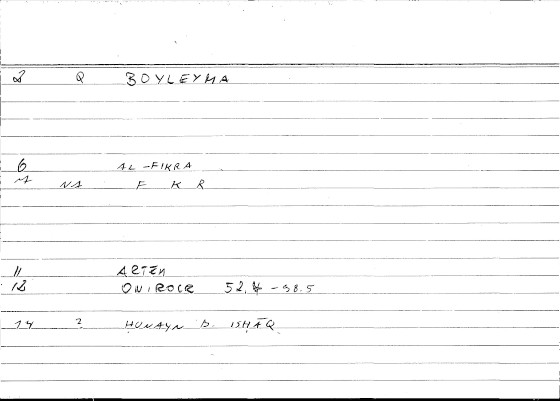 2 Q BOYLEYMA
6 AL-FIKRA
NA F K R
11 ARTEM
12 ONIROCR 52.4-58.5
14 2 ḤUNAYN B. ISḤĀQ